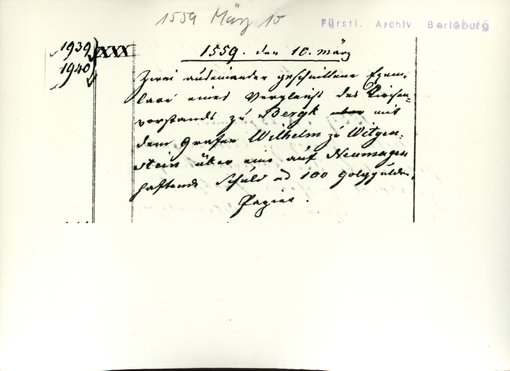 1559 März 10
Fürstl. Archiv Berleburg
1939
1940
XXX
1559. den 10. märz
Zwei auseinander geschnittene Exem-
lare eines Vergleichs des Kirchen-
vorstands zu Bergk mit
dem Grafen Wilhelm zu Witgen-
stein über eine auf Neumagen
haftende Schuld ad 100 Goldgulden,
Papier.